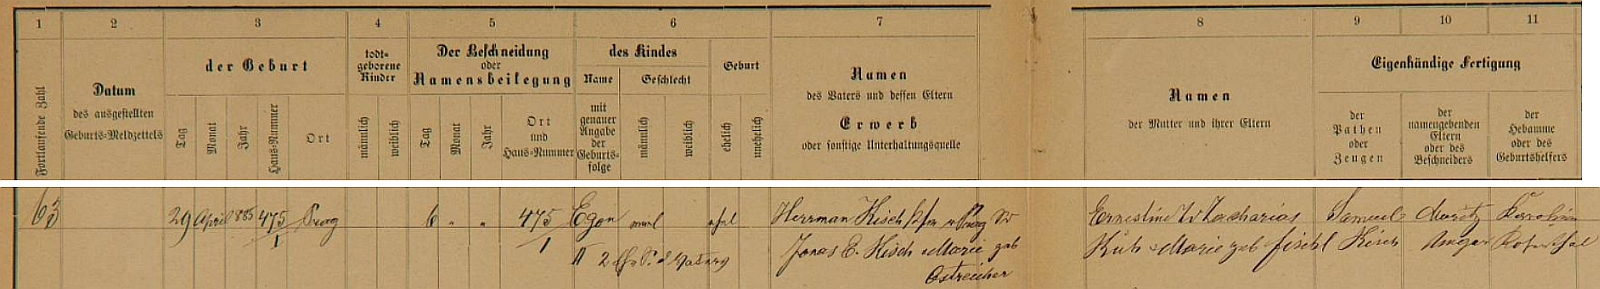 1 2 3 4 5 6 7 8 9 10 11
Fortlaufende Zahl
Datum
des ausgestellten
Geburts-Meldzettels
der Geburt
Tag Monat Jahr Haus-Nummer Ort
todt-
geborene
Kinder
männlich weiblich
Der Beschneidung
oder
Namensbeilegung
Tag Monat Jahr
Ort
und
Haus-Nummer
des Kindes
Name Geschlecht
mit
genauer
Angabe
der
Geburts-
folge
männlich weiblich
Geburt
ehelich unehelich
Namen
des Vaters und dessen Eltern
Erwerb
oder sonstige Unterhaltungsquelle
Namen
der Mutter und ihrer Eltern
Eigenhändige Fertigung
der
Pathen
oder
Zeugen
der
namengebenden
Eltern
oder des
Beschneiders
der
Hebamme
oder des
Geburtshelfers
63 29 April 885 475/I Prag 6 " " 475/I Egon
II 2
Herrman Kisch
Jonas E. Kisch Marie geb
Ostreicher
Ernestine Zacharias
Kuh Marie geb Fischl
Samuel
Kisch
Moritz
Unger
Karolina